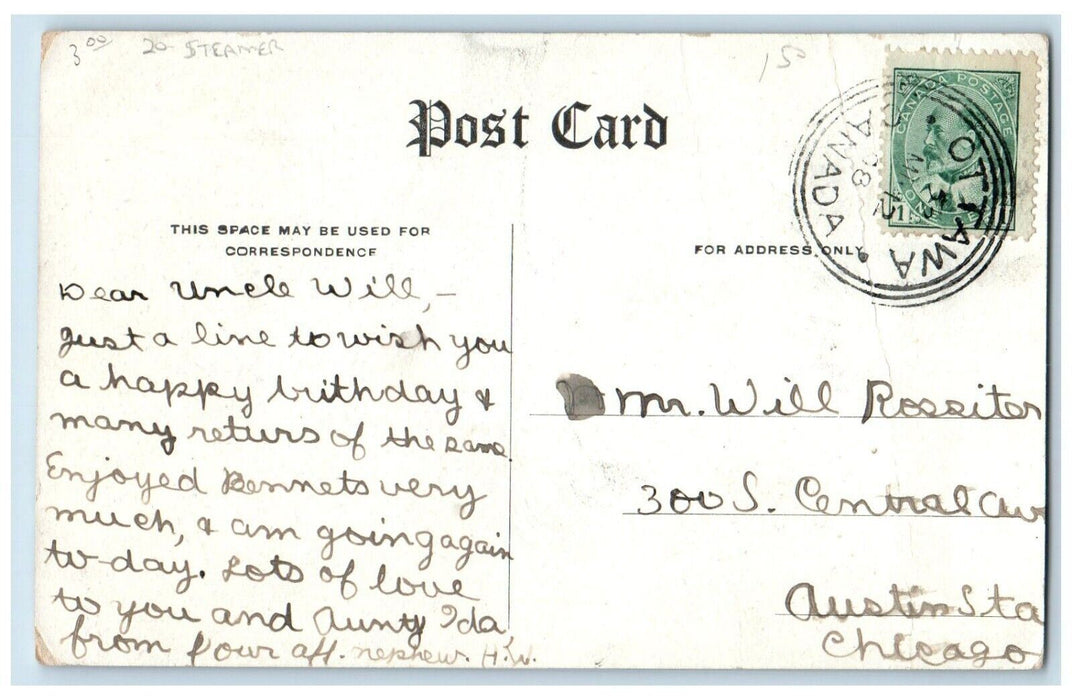 3 00 20- STEAMER 150
Post Card
CANADA POSTAGE
OTTAWA CANADA
THIS SPACE MAY BE USED FOR
CORRESPONDENCE
FOR ADDRESS ONLY
Dear Uncle Will,-
Just a line to wish you
a happy birthday &
many returs of the same.
Enjoyed Bennets very
much, & am going again
to-day. Lots of love
to you and Aunty Ida
from your aff. nephew. H.W.
Mr. Will Rossiter
300 S. Central Av
Austin Sta
Chicago